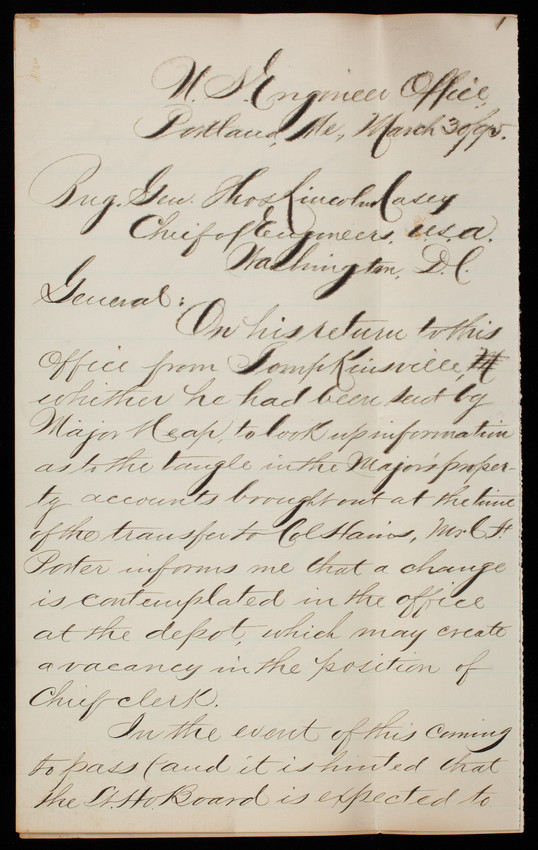 1
U. S. Engineer Office,
Portland, Me., March 30/95.
Brig. Gen. Thos Lincoln Casey
Chief of Engineers. U.S.A.
Washington, D.C.
General:
On his return to this
Office from Tompkinsville,
whither he had been sent by
Major Heap, to look up information
as to the tangle in the Major's proper-
ty accounts brought out at the time
of the transfer to Col Hains, Mr. C. H.
Porter informs me that a change
is contemplated in the office
at the depot, which may create
a vacancy in the position of
Chief clerk.
In the event of this coming
to pass (and it is hinted that
the Lt. Ho Board is expected to